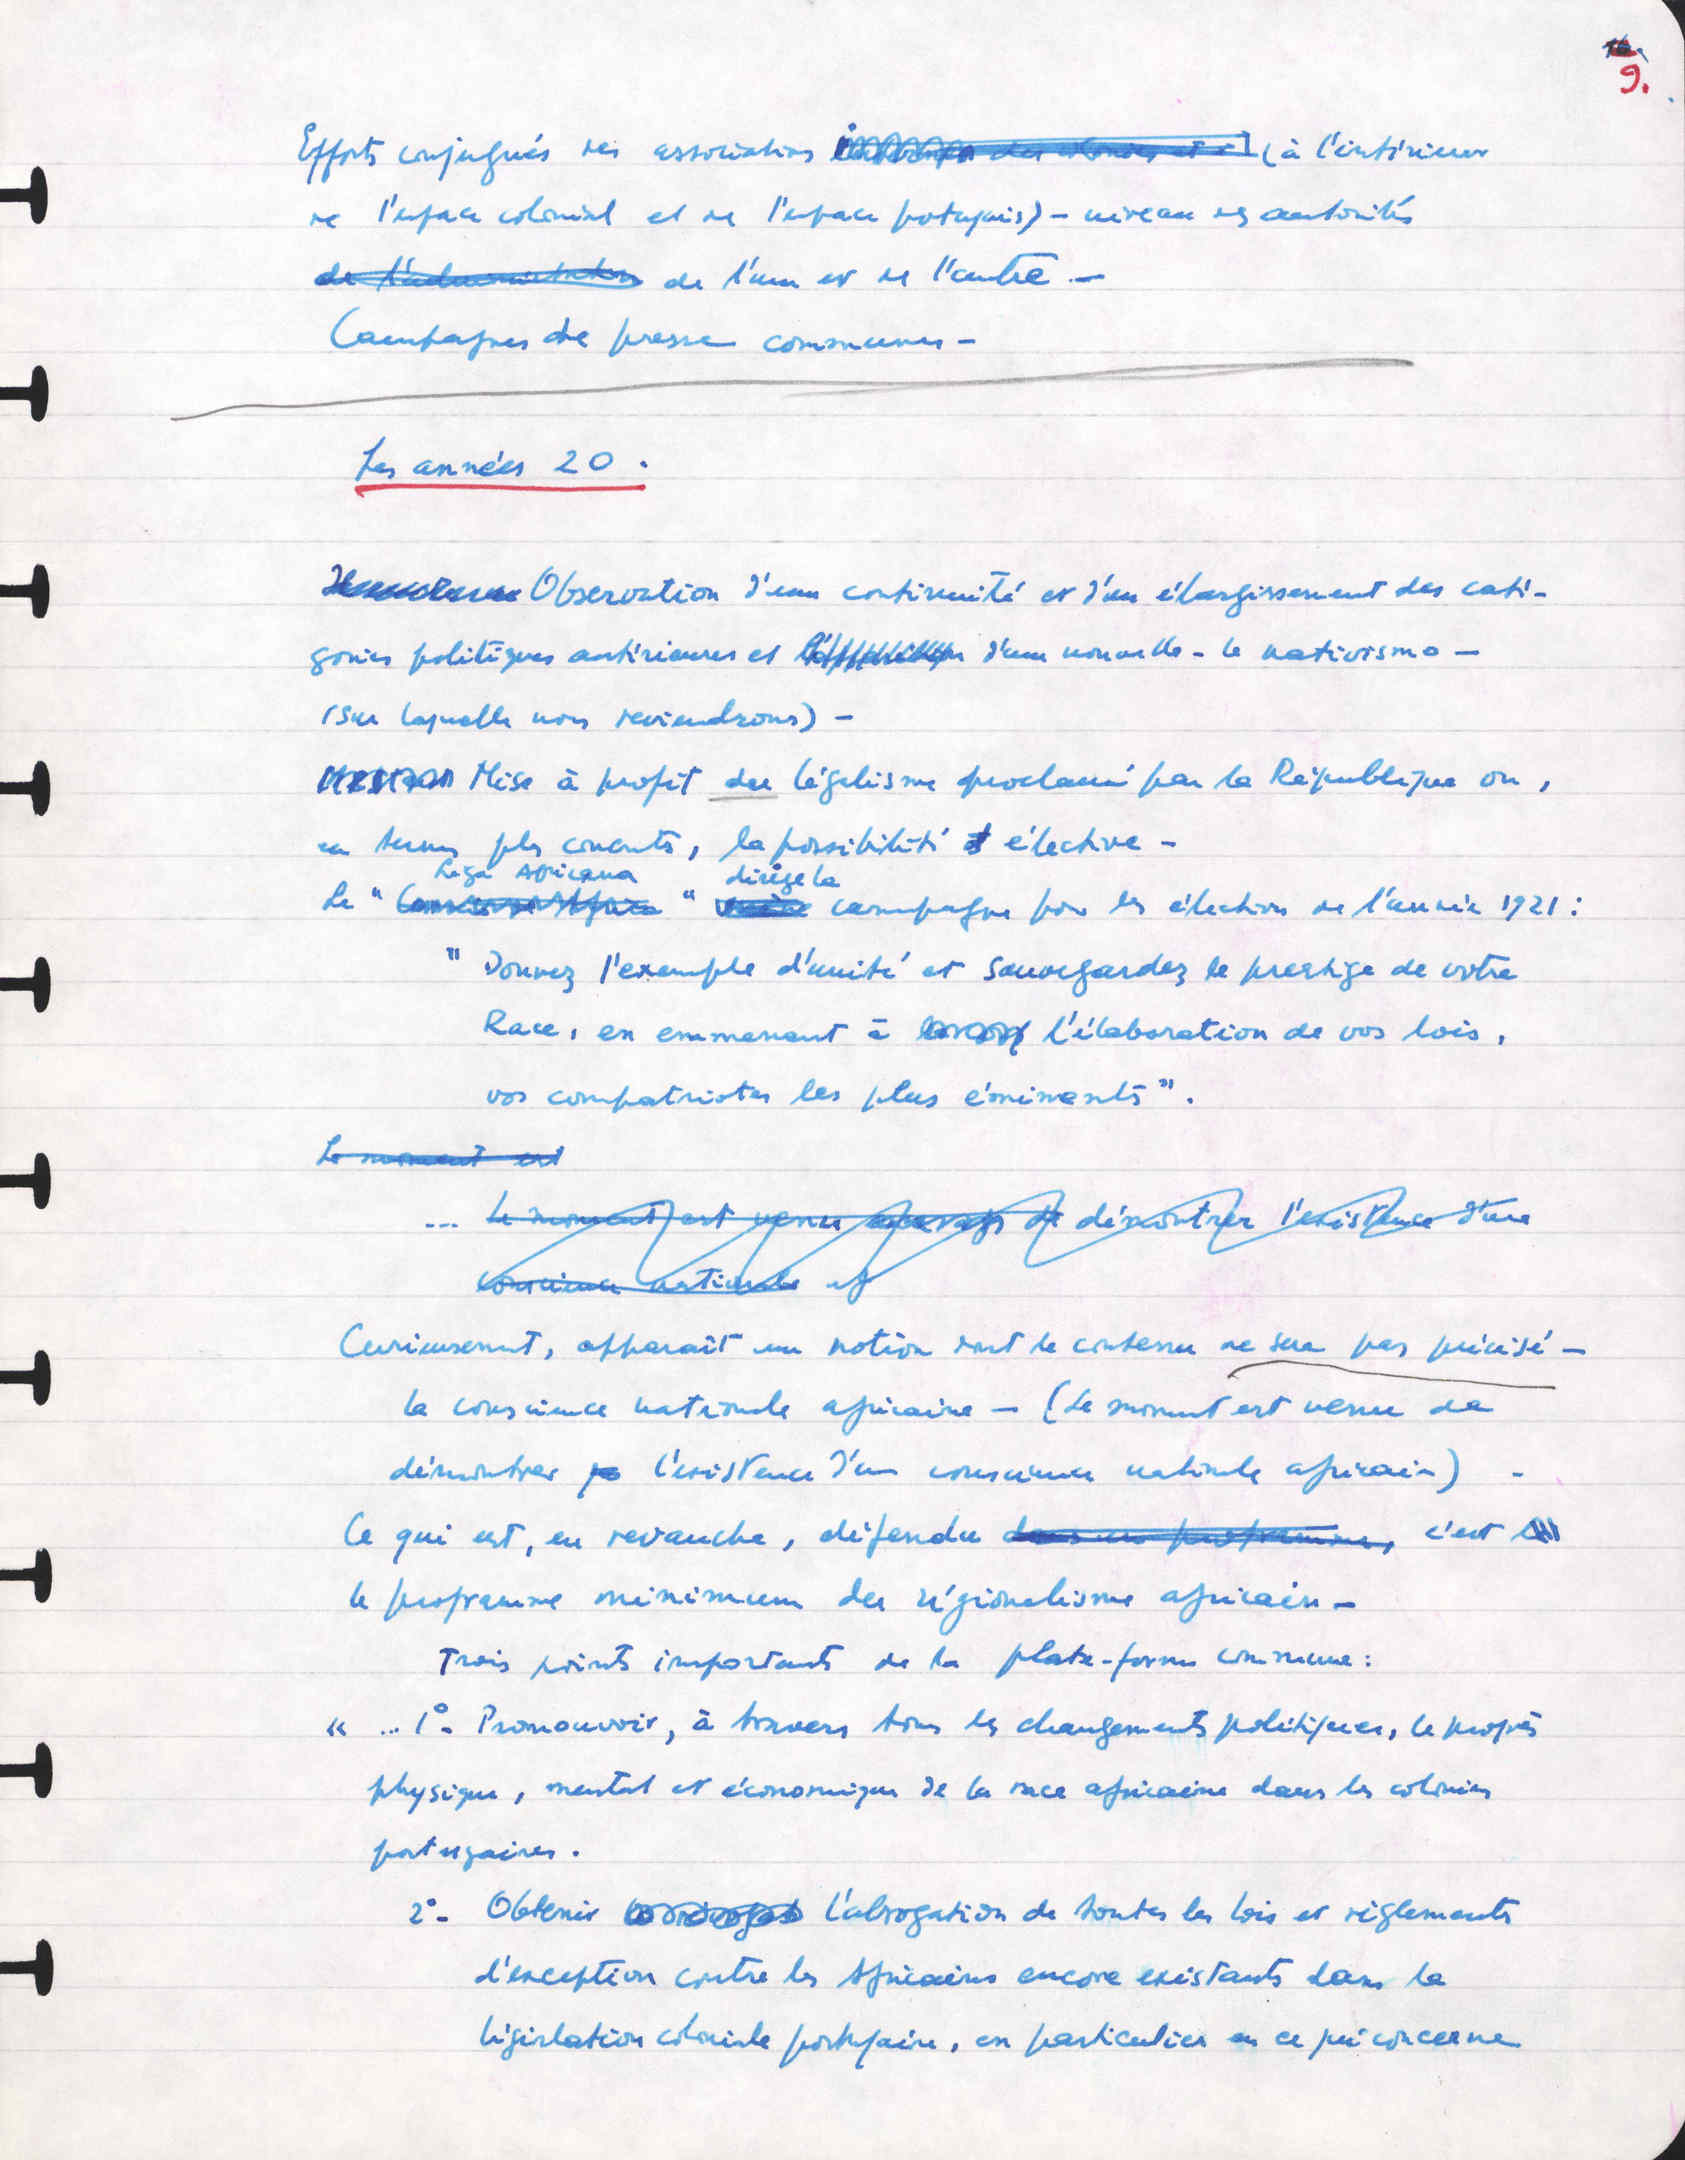 9.
Efforts conjugués des associations (à l'intérieur
de l'espace colonial et de l'espace portugais) - niveau des autorités
de l'administration de l'un et de l'autre -
Campagnes de presse communes -
Les années 20.
Observation d'une continuité et d'un élargissement des caté-
gories politiques antérieures et d'une nouvelle - le nativismo -
(sur laquelle nous reviendrons) -
Mise à profit du légalisme proclamé par la République ou,
en termes plus concrets, la possibilité élective -
Liga Africana dirige la
Le " " campagne pour les élections de l'année 1921 :
" Donnez l'exemple d'unité et sauvegardez le prestige de votre
Race, en emmenant à l'élaboration de vos lois,
vos compatriotes les plus éminents ".
Le moment est
... Le moment est venu de démontrer l'existence d'une
conscience nationale et
Curieusement, apparaît une notion dont le contenu ne sera pas précisé -
la conscience nationale africaine - (Le moment est venu de
démontrer l'existence d'une conscience nationale africain) -
Ce qui est, en revanche, défendu dans un programme, c'est
le programme minimum du régionalisme africain -
Trois points importants de la plate-forme commune :
« ... 1°- Promouvoir, à travers tous les changements politiques, le progrès
physique, mental et économique de la race africaine dans les colonies
portugaises.
2°- Obtenir l'abrogation de toutes les lois et règlements
d'exception contre les Africains encore existants dans la
législation coloniale portugaise, en particulier en ce qui concerne